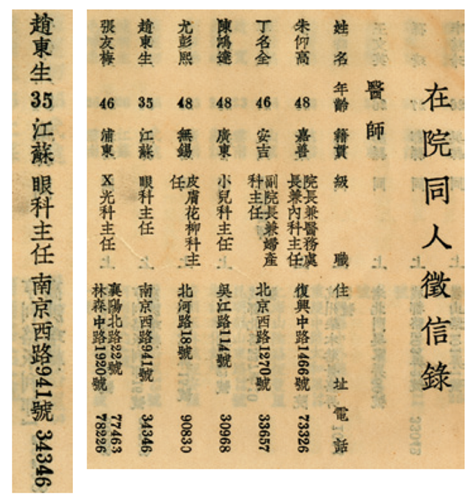 在院同人徵信錄
醫師
姓名 年齡 籍貫 級職 住址 電話
朱仰高 48 嘉善 院長兼醫務處長兼內科主任 復興中路1466號 73326
丁名全 46 安吉 副院長兼婦產科主任 北京西路1270號 33657
陳鴻達 48 廣東 小兒科主任 吳江路114號 30968
尤彭熙 48 無錫 皮膚花柳科主任 北河路18號 90830
趙東生 35 江蘇 眼科主任 南京西路941號 34346
張友梅 46 浦東 X光科主任 襄陽北路22號 77463
林森中路1920號 78226
趙東生 35 江蘇 眼科主任 南京西路941號 34346